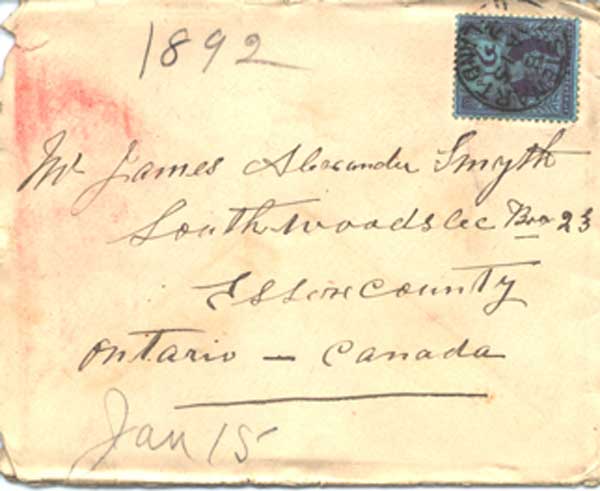 1892
Mr James Alexander Smyth
South woodslee Box 23
Essex county
Ontario - Canada
Jan 15